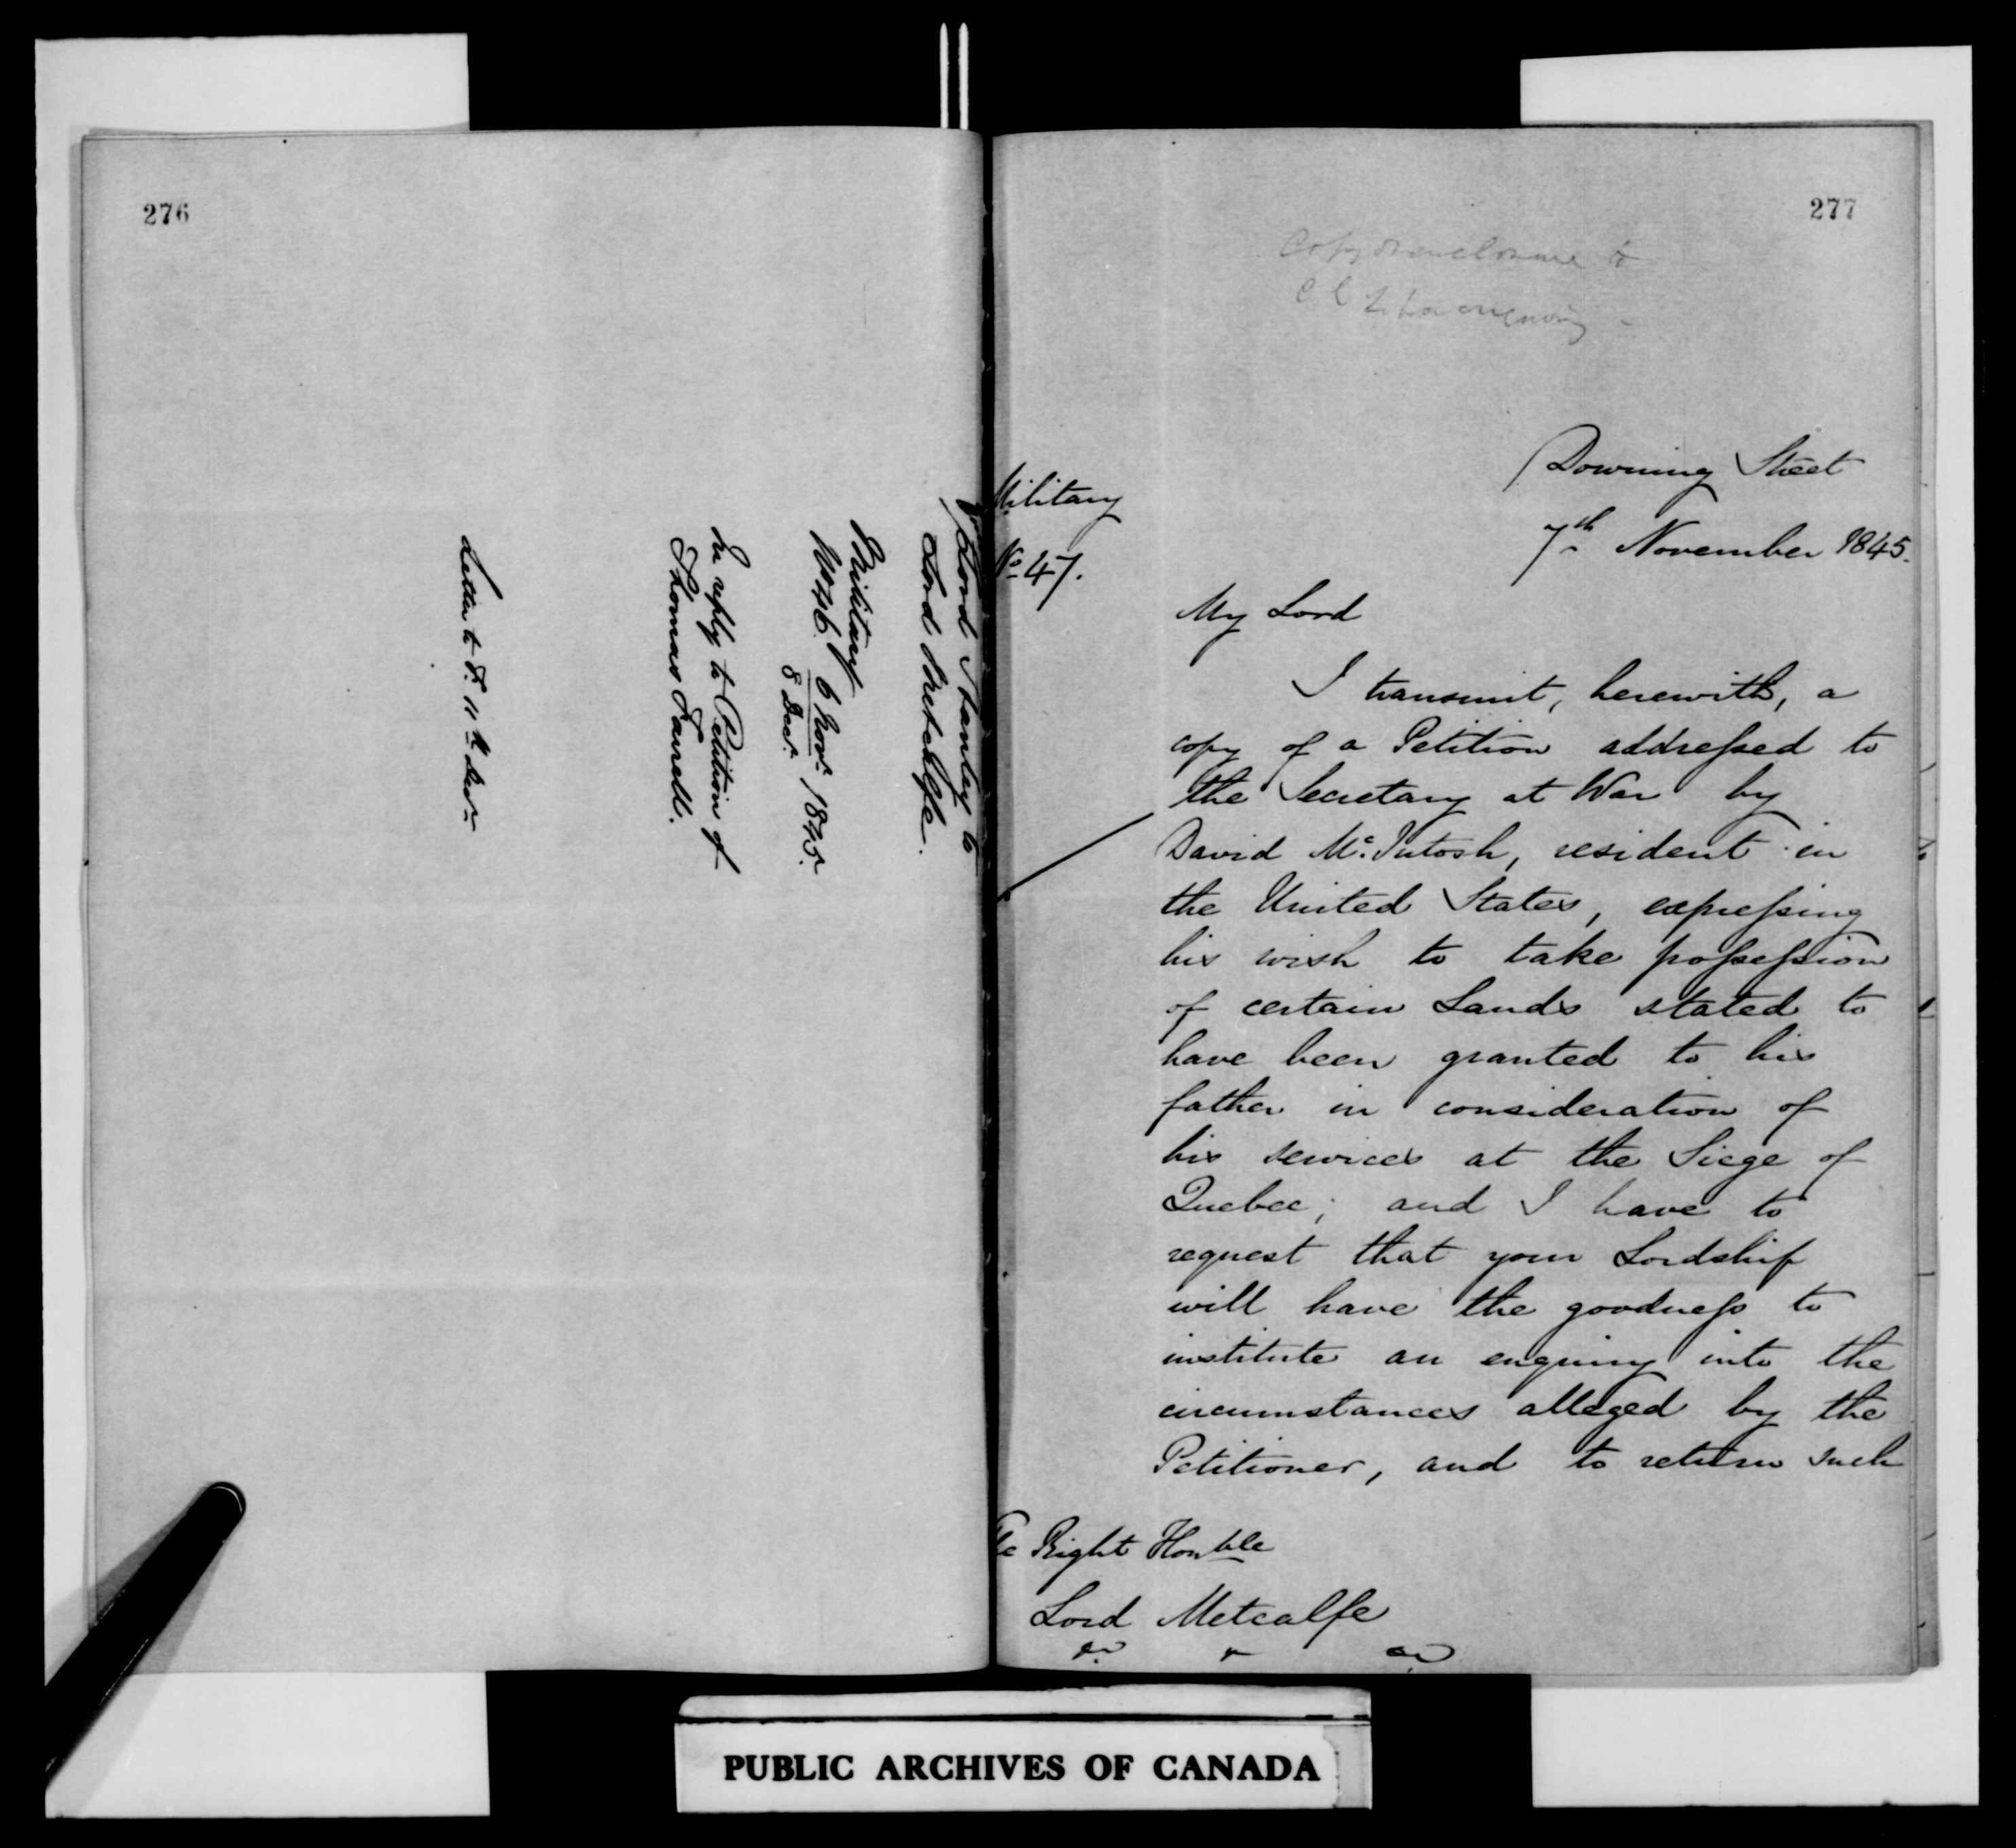 276
Lord Stanley to
Lord Metcalfe.
Military
No 46. 6 Novr. 1845.
8 Decr.
In reply to Petition of
Thomas Farrell.
Letter to 11th Decr.
277
Copy enclosure to
Downing Street
7th November 1845.
Military
No 47.
My Lord
I transmit, herewith, a
copy of a Petition addressed to
the Secretary at War by
David McIntosh, resident in
the United States, expressing
his wish to take possession
of certain Lands stated to
have been granted to his
father in consideration of
his services at the Siege of
Quebec; and I have to
request that your Lordship
will have the goodness to
institute an enquiry into the
circumstances alleged by the
Petitioner, and to return such
The Right Honble
Lord Metcalfe
PUBLIC ARCHIVES OF CANADA